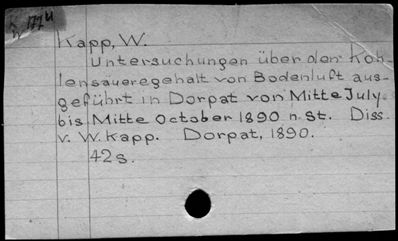 Kapp, W.
Untersuchungen über den Koh-
lensäueregehalt von Bodenluft aus-
geführt in Dorpat von Mitte July
bis Mitte October 1890 n. St. Diss.
v. W. Kapp. Dorpat, 1890.
42 s.